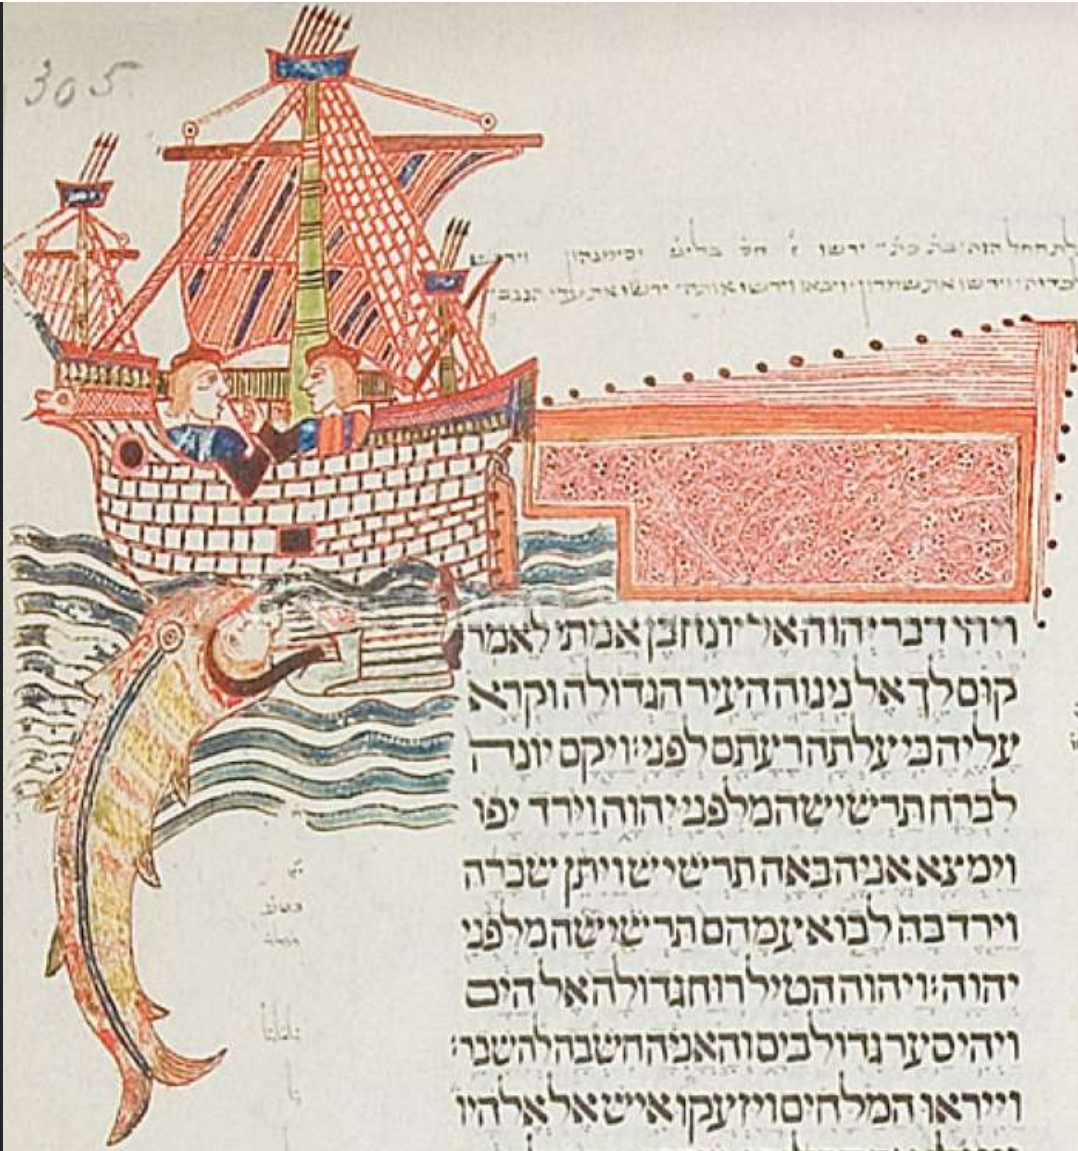 305
וירשו את שמרון ויבאו וירשו אותה ירשו את ערי הנגב
ויהי דבר יהוה אל יונה בן אמתי לאמר
קום לך אל נינוה העיר הגדולה וקרא
עליה כי עלתה רעתם לפני׃ ויקם יונה
לברח תרשישה מלפני יהוה וירד יפו
וימצא אניה באה תרשיש ויתן שכרה
וירד בה לבוא עמהם תרשישה מלפני
יהוה׃ ויהוה הטיל רוח גדולה אל הים
ויהי סער גדול בים והאניה חשבה להשבר׃
וייראו המלחים ויזעקו איש אל אלהיו